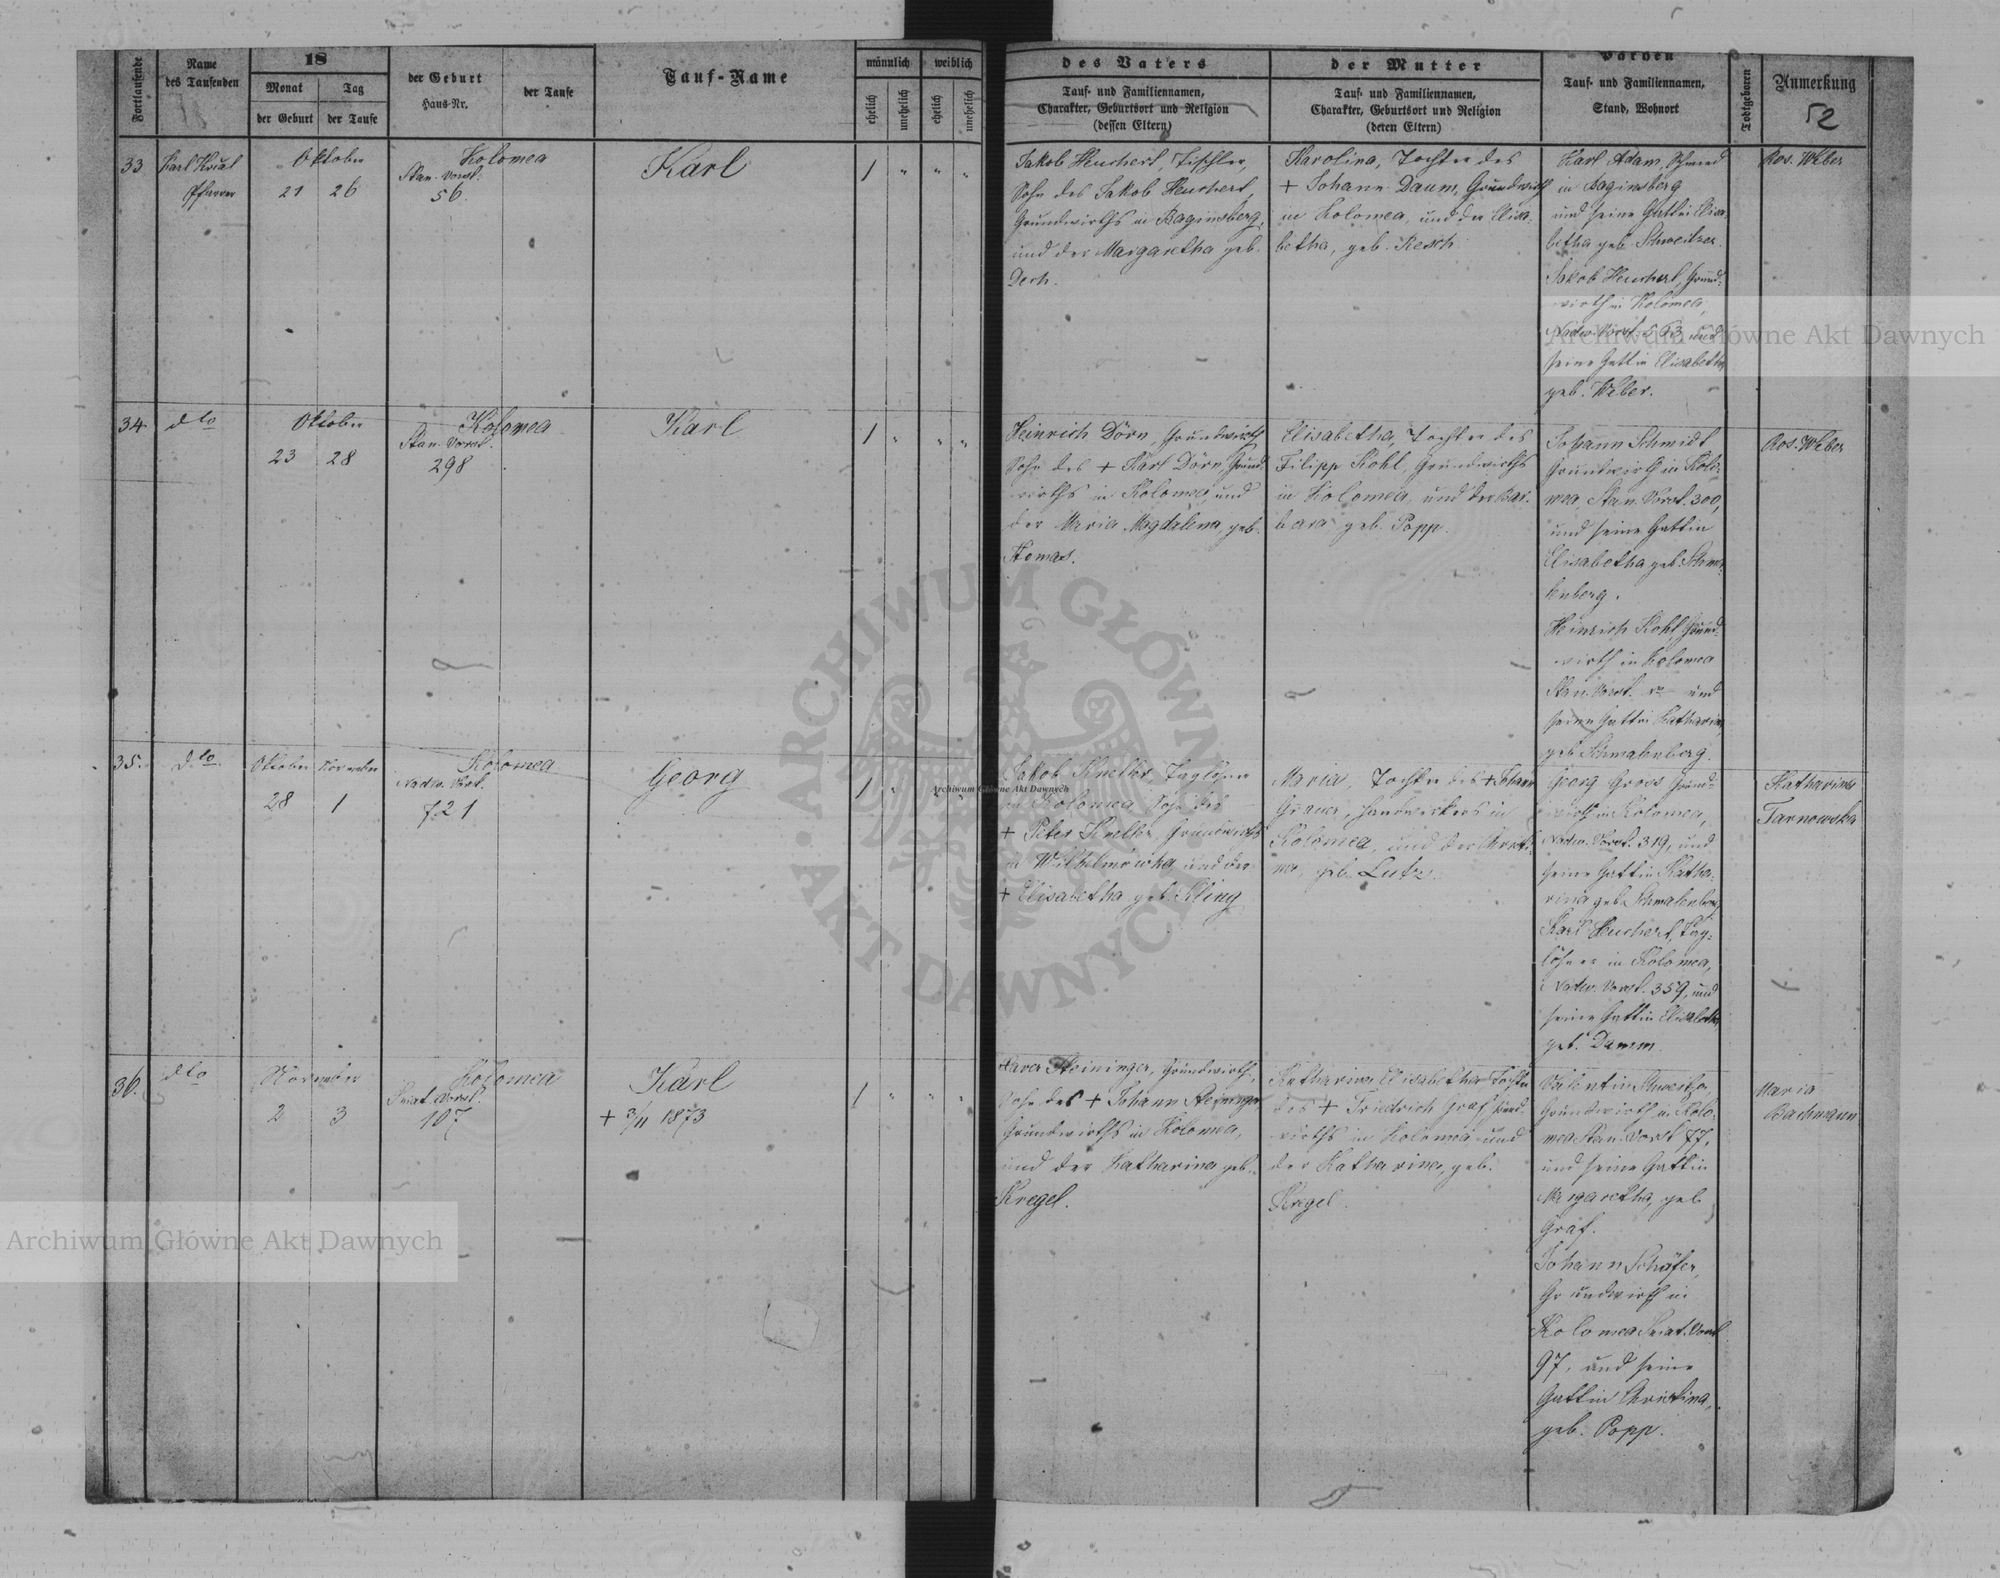 Fortlaufende
Name
des Taufenden
18
Monat
Tag
der Geburt
der Taufe
der Geburt
Haus-Nr.
der Taufe
Tauf-Name
männlich
weiblich
ehelich
unehelich
ehelich
unehelich
des Vaters
Tauf- und Familiennamen,
Charakter, Geburtsort und Religion
(dessen Eltern)
der Mutter
Tauf- und Familiennamen,
Charakter, Geburtsort und Religion
(deren Eltern)
Pathen
Tauf- und Familiennamen,
Stand, Wohnort
Todtgeboren
Anmerkung
52
33
Karl
Pfarrer
Oktober
21 26
Kolomea
Stan. Vorst.
56
Karl
1 " " "
Jakob Heuchert, Tischler,
Sohn des Jakob Heuchert,
Grundwirths in Baginsberg,
und der Margaretha geb.
Desch.
Karolina, Tochter des
+ Johann Daum, Grundwirth
in Kolomea, und der Elisa-
betha, geb. Resch
Karl Adam, Schmied
in Baginsberg
und seine Gattin Elisa-
betha geb. Schweitzer.
Jakob Heuchert, Grund-
wirth in Kolomea,
Nadw. Vorst. 563, und
seine Gattin Elisabetha
geb. Weber.
Ros. Weber
34.
dto
Oktober
23 28
Kolomea
Stan. Vorst.
298
Karl
1 " " "
Heinrich Dörn, Grundwirth
Sohn des + Karl Dörn, Grund-
wirths in Kolomea und
der Maria Magdalena, geb.
Thomas.
Elisabetha, Tochter des
Filipp Kohl, Grundwirths
in Kolomea, und der Bar-
bara geb. Popp.
Johann Schmidt
Grundwirth in Kolo-
mea, Stan. Vorst. 300,
und seine Gattin
Elisabetha geb. Schma-
lenberg.
Heinrich Kohl, Grund-
wirth in Kolomea
Stan. Vorst. und
seine Gattin Katharina,
geb. Schmalenberg.
Ros. Weber
35.
dto
Oktober November
28 1
Kolomea
Nadw. Vorst.
721
Georg
1 " " "
Jakob Kneller, Taglöhner
in Kolomea, Sohn des
+ Peter Kneller, Grundwirths
in Wilhelmowka, und der
+ Elisabetha geb. Kling
Maria, Tochter des + Johann
Grauer, Handwerkers in
Kolomea, und der Christi-
na, geb. Lutz.
Georg Gross Grund-
wirth in Kolomea,
Nadw. Vorst. 319, und
seine Gattin Katha-
rina geb. Schmalenberg
Karl Heuchert, Tag-
löhner in Kolomea,
Nadw. Vorst. 359, und
seine Gattin Elisabetha
geb. Damm.
Katharina
Tarnowska
36.
dto
November
2 3
Kolomea
Sniat. Vorst.
107
Karl
+ 3/11 1873
1 " " "
Xaver Steininger, Grundwirth,
Sohn des + Johann Steininger
Grundwirths in Kolomea,
und der Katharina geb.
Kregel.
Katharina Elisabetha Tochter
des + Friedrich Graf Grund-
wirths in Kolomea und
der Katharina, geb.
Kregel.
Valentin Schweitzer
Grundwirth in Kolo-
mea Stan. Vorst. 77,
und seine Gattin
Margaretha, geb.
Graf.
Johann Schäfer,
Grundwirth in
Kolomea Sniat. Vorst.
97, und seine
Gattin Christina,
geb. Popp.
Maria
Bachmann
Archiwum Główne Akt Dawnych
Archiwum Główne Akt Dawnych
Archiwum Główne Akt Dawnych
ARCHIWUM GŁÓWNE AKT DAWNYCH